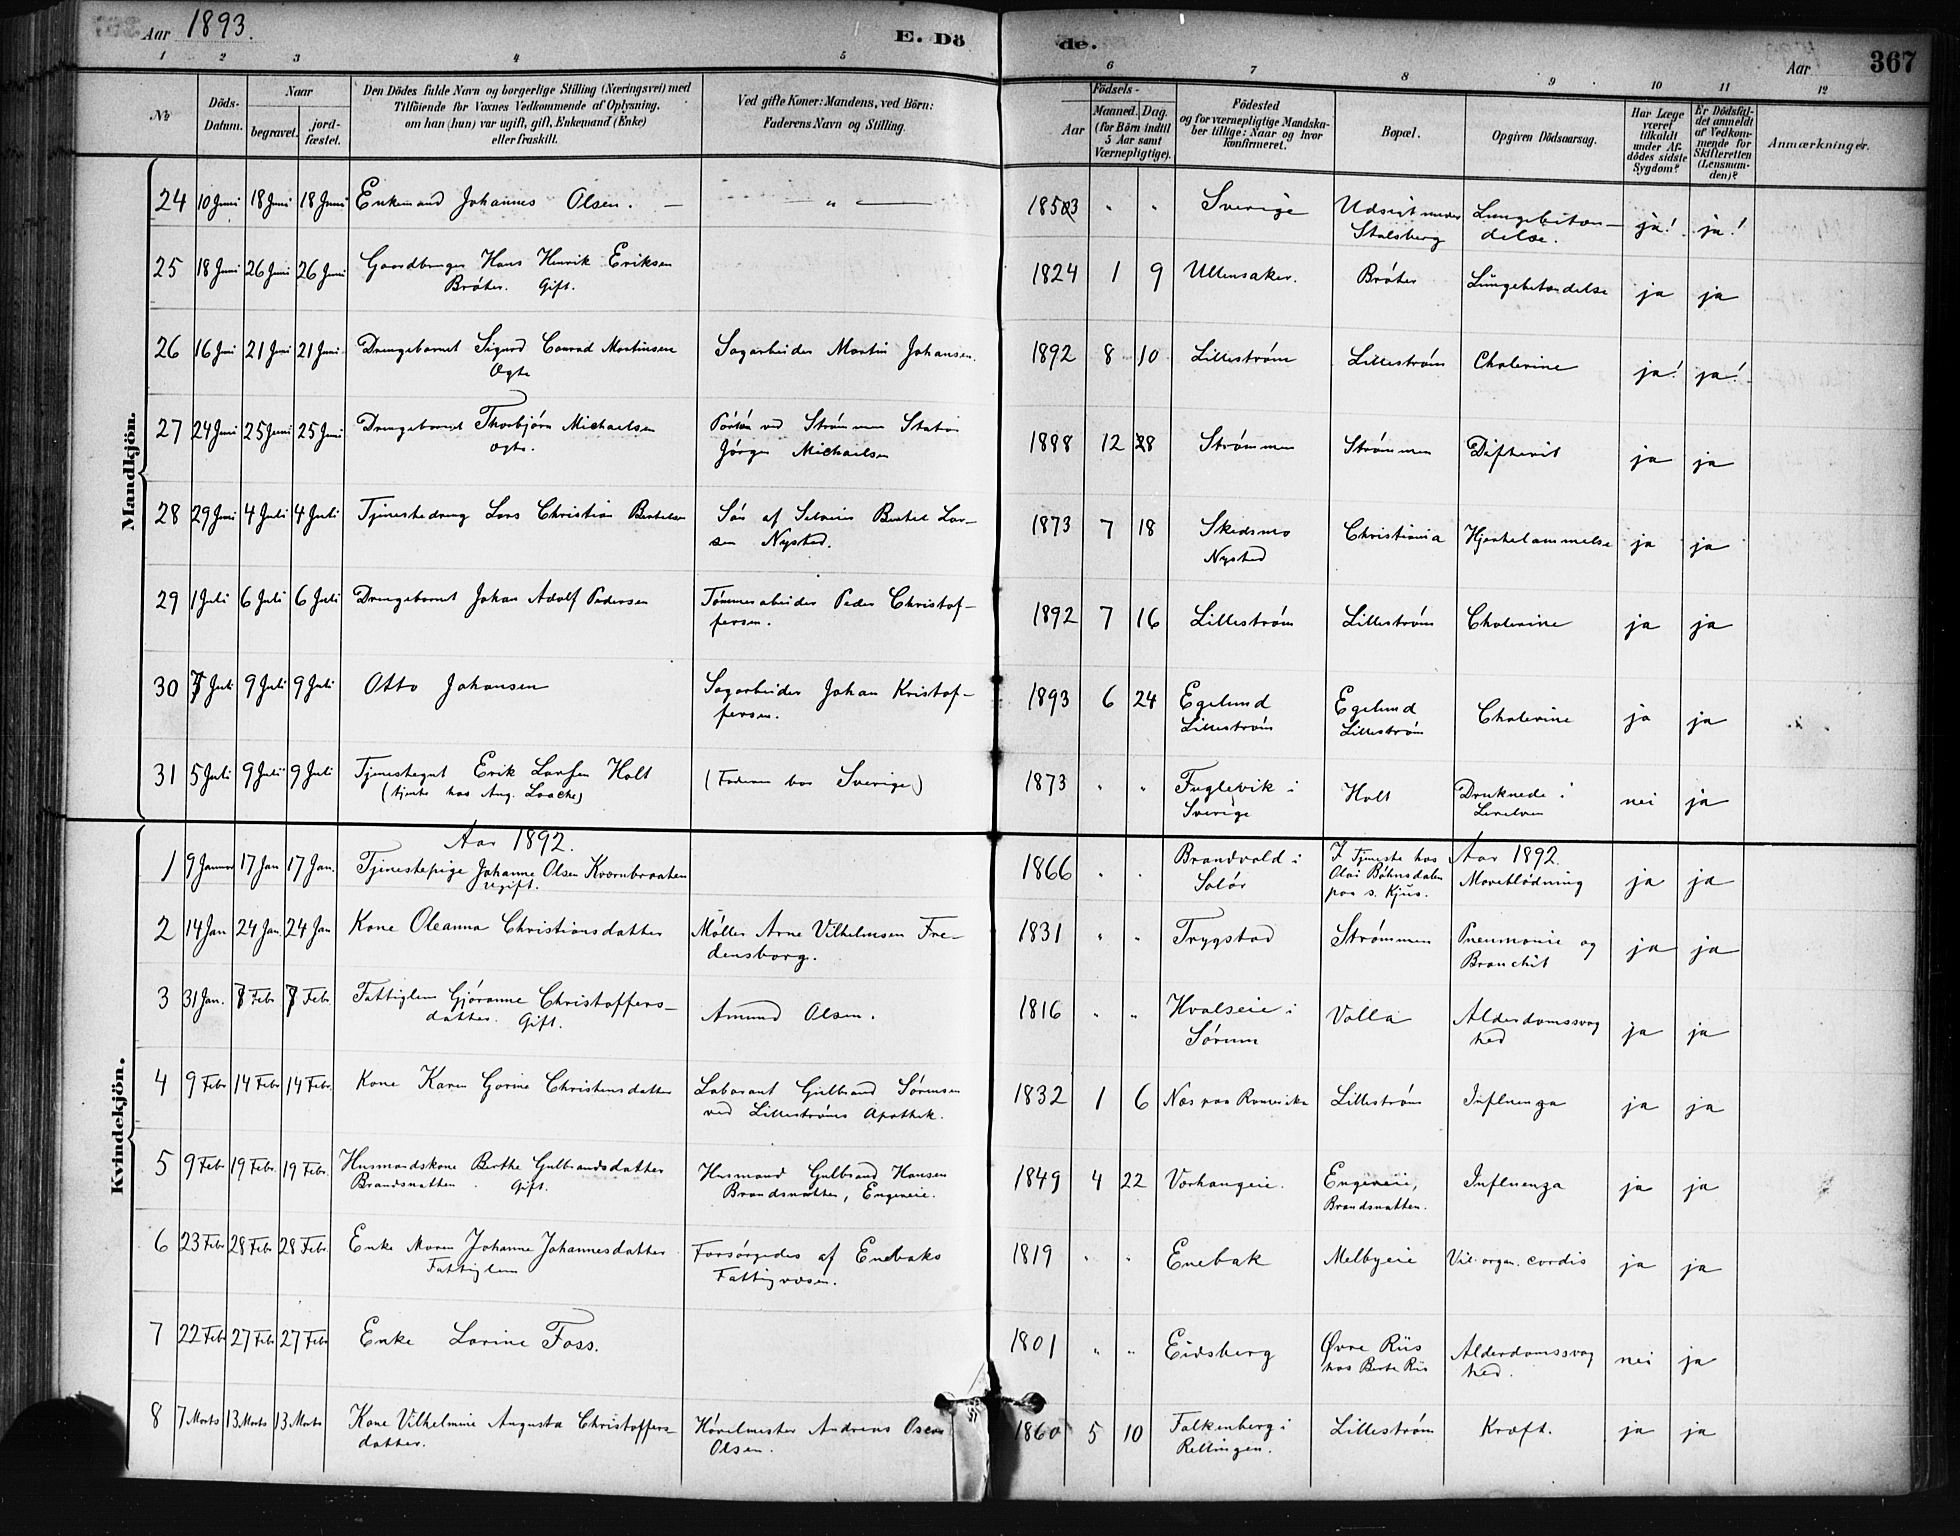 Aar 1893.
E. Dö
de.
Aar
367
1 2 3 4 5 6 7 8 9 10 11 12
No
Döds-
Datum.
Naar
begravet.
jord-
fæstet.
Den Dödes fulde Navn og borgerlige Stilling (Næringsvei) med
Tilföiende for Voxnes Vedkommende af Oplysning,
om han (hun) var ugift, gift, Enkemand (Enke)
eller fraskilt.
Ved gifte Koner: Mandens, ved Börn:
Faderens Navn og Stilling.
Födsels-
Aar
Maaned. Dag.
(for Börn indtil
5 Aar samt
Værnepligtige).
Födested
og for værnepligtige Mandska-
ber tillige: Naar og hvor
konfirmeret.
Bopæl.
Opgiven Dödsaarsag.
Har Læge
været
tilkaldt
under Af-
dödes sidste
Sygdom?
Er Dödsfal-
det anmeldt
af Vedkom-
mende for
Skifteretten
(Lensman-
den)?
Anmærkninger.
Mandkjön.
24 10 Juni 18 Juni 18 Juni Enkemand Johannes Olsen. — — " — 1853 " " Sverige Udsigt under Lungebetæn- ja! ja!
Stalsberg delse.
25 18 Juni 26 Juni 26 Juni Gaardbruger Hans Henrik Eriksen 1824 1 9 Ullensaker. Bröter Lungebetændelse ja ja
Bröter. Gift.
26 16 Juni 21 Juni 21 Juni Drengebarnet Sigurd Conrad Martinsen Sagarbeider Martin Johansen. 1892 8 10 Lilleström Lilleström Cholerine ja! ja!
Ægte
27 24 Juni 25 Juni 25 Juni Drengebarnet Thorbjörn Michaelsen Portör ved Strömmen Station 1888 12 28 Strömmen Strömmen Difterit ja ja
ægte. Jörgen Michaelsen
28 29 Juni 4 Juli 4 Juli Tjenestedreng Lars Christian Bertelsen Sön af Selveier Bertel Lar- 1873 7 18 Skedsmo Christiania Hjertelammelse ja ja
sen Nysted. Nysted
29 1 Juli 6 Juli 6 Juli Drengebarnet Johan Adolf Pedersen Tömmerarbeider Peder Christof- 1892 7 16 Lilleström Lilleström Cholerine ja ja
fersen.
30 7 Juli 9 Juli 9 Juli Otto Johansen Sagarbeider Johan Kristof- 1893 6 24 Egelund Egelund Cholerine ja ja
fersen. Lilleström Lilleström
31 5 Juli 9 Juli 9 Juli Tjenestegut Erik Larsen Holt (Faderen bor Sverige) 1873 " " Fuglevik i Holt Druknede i nei ja
(tjente hos Aug. Laache) Sverige Leirelven
Kvindekjön.
Aar 1892. Aar 1892.
1 9 Januar 17 Jan 17 Jan. Tjenestepige Johanne Olsen Kvernbraaten 1866 " " Brandvold i I Tjeneste hos Maveblödning ja ja
ugift. Solör Olai Böhnsdalen
paa s. Kjus.
2 14 Jan 24 Jan. 24 Jan Kone Oleanna Christiansdatter Möller Arne Vilhelmsen Fre- 1831 " " Trygstad Strömmen Pneumonie og ja ja
densborg. Bronchit
3 31 Jan. 7 Febr 7 Febr. Fattiglem Gjöranne Christoffers- Amund Olsen. 1816 " " Hvalseie i Volla Alderdomssvag ja ja
datter. Gift. Sörum hed
4 9 Febr 14 Febr 14 Febr. Kone Karen Gorine Christensdatter Laborant Gulbrand Sörensen 1832 1 6 Næs paa Romerike Lilleström Influenza ja ja
ved Lilleströms Apothek.
5 9 Febr 19 Febr. 19 Febr. Husmandskone Berthe Gulbrandsdatter Husmand Gulbrand Hansen 1849 4 22 Vorhaugeie. Engereie, Influenza ja ja
Brandsnatten. Gift. Brandsnatten, Engereie. Brandsnatten.
6 23 Febr 28 Febr 28 Febr. Enke Maren Johanne Johannesdatter Forsörgedes af Enebaks 1819 " " Enebak Melbyeie Vit. organ. cordis ja ja
Fattiglem Fattigvæsen.
7 22 Febr 27 Febr 27 Febr Enke Larine Foss. 1801 " " Eidsberg Øvre Riis Alderdomssvag nei ja
hos Berte Riis hed.
8 7 Marts 13 Marts 13 Marts Kone Vilhelmine Augusta Christoffers- Hövelmester Andreas Oscar 1860 5 10 Falkenberg i Lilleström Kræft. ja ja
datter. Olsen. Rellingen.